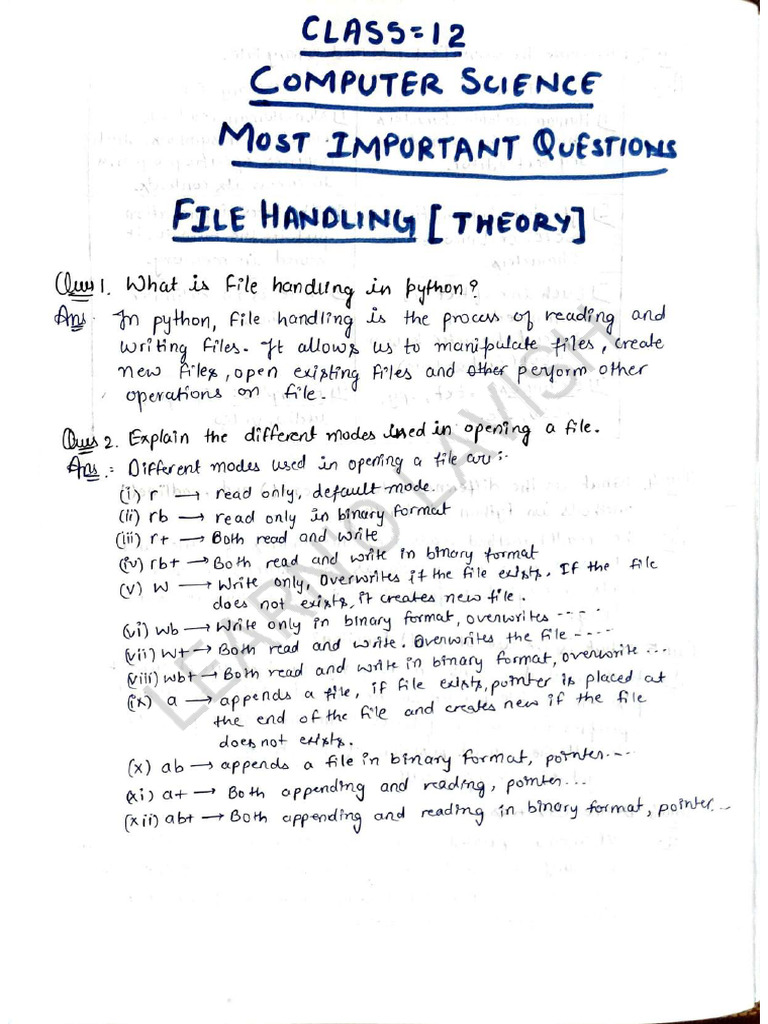 CLASS=12
COMPUTER SCIENCE
MOST IMPORTANT QUESTIONS
FILE HANDLING [THEORY]
Ques 1. What is file handling in python?
Ans. In python, file handling is the process of reading and
writing files. It allows us to manipulate files, create
new files, open existing files and other perform other
operations on file.
Ques 2. Explain the different modes used in opening a file.
Ans.:- Different modes used in opening a file are:-
(i) r → read only, default mode.
(ii) rb → read only in binary format
(iii) r+ → Both read and write
(iv) rb+ → Both read and write in binary format
(v) w → Write only, Overwrites if the file exists. If the file
does not exists, it creates new file.
(vi) wb → Write only in binary format, overwrites ----
(vii) w+ → Both read and write. Overwrites the file ----
(viii) wb+ → Both read and write in binary format, overwrite ...
(ix) a → appends a file, if file exists, pointer is placed at
the end of the file and creates new if the file
does not exists.
(x) ab → appends a file in binary format, pointer----
(xi) a+ → Both appending and reading, pointer...
(xii) ab+ → Both appending and reading in binary format, pointer...
LEARN'O LAVISH